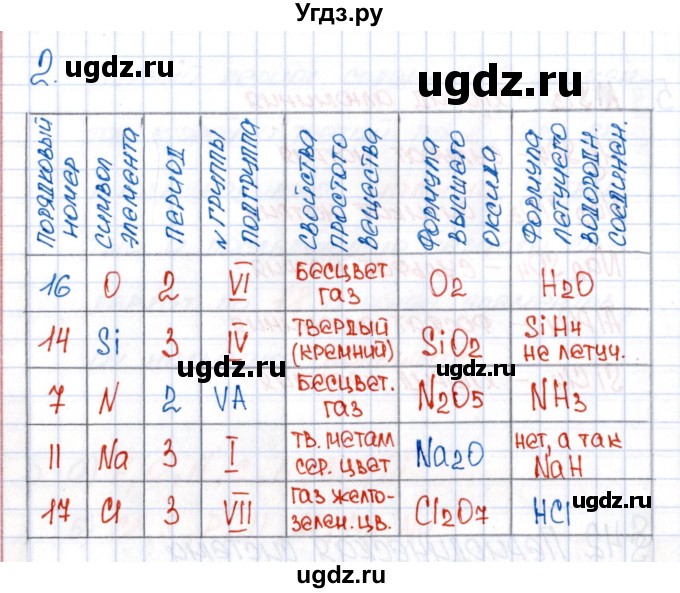 Угдз.ру
ugdz.ru ugdz.ru
2.
ПОРЯДКОВЫЙ НОМЕР | СИМВОЛ ЭЛЕМЕНТА | ПЕРИОД | № ГРУППЫ ПОДГРУППА | СВОЙСТВА ПРОСТОГО ВЕЩЕСТВА | ФОРМУЛА ВЫСШЕГО ОКСИДА | ФОРМУЛА ЛЕТУЧЕГО ВОДОРОДН. СОЕДИНЕН.
16 | O | 2 | VI | Бесцвет. газ | O2 | H2O
14 | Si | 3 | IV | твердый (кремний) | SiO2 | SiH4 не летуч.
ugdz.ru ugdz.ru
7 | N | 2 | VA | Бесцвет. газ | N2O5 | NH3
11 | Na | 3 | I | тв. металл сер. цвет | Na2O | нет, а так NaH
17 | Cl | 3 | VII | газ желто-зелен. цв. | Cl2O7 | HCl
ugdz.ru ugdz.ru
ugdz.ru